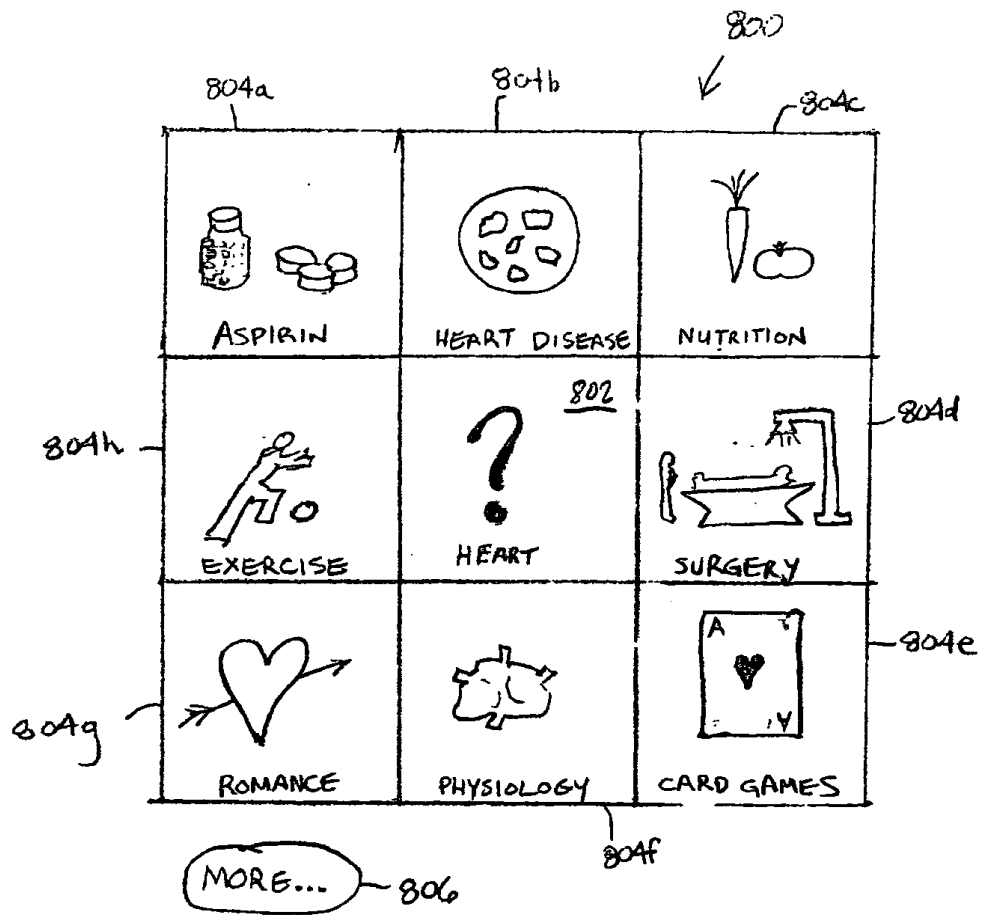 800
804a
804b
804c
ASPIRIN
HEART DISEASE
NUTRITION
804h
802
804d
?
EXERCISE
HEART
SURGERY
A
A
804e
804g
ROMANCE
PHYSIOLOGY
CARD GAMES
804f
MORE...
806